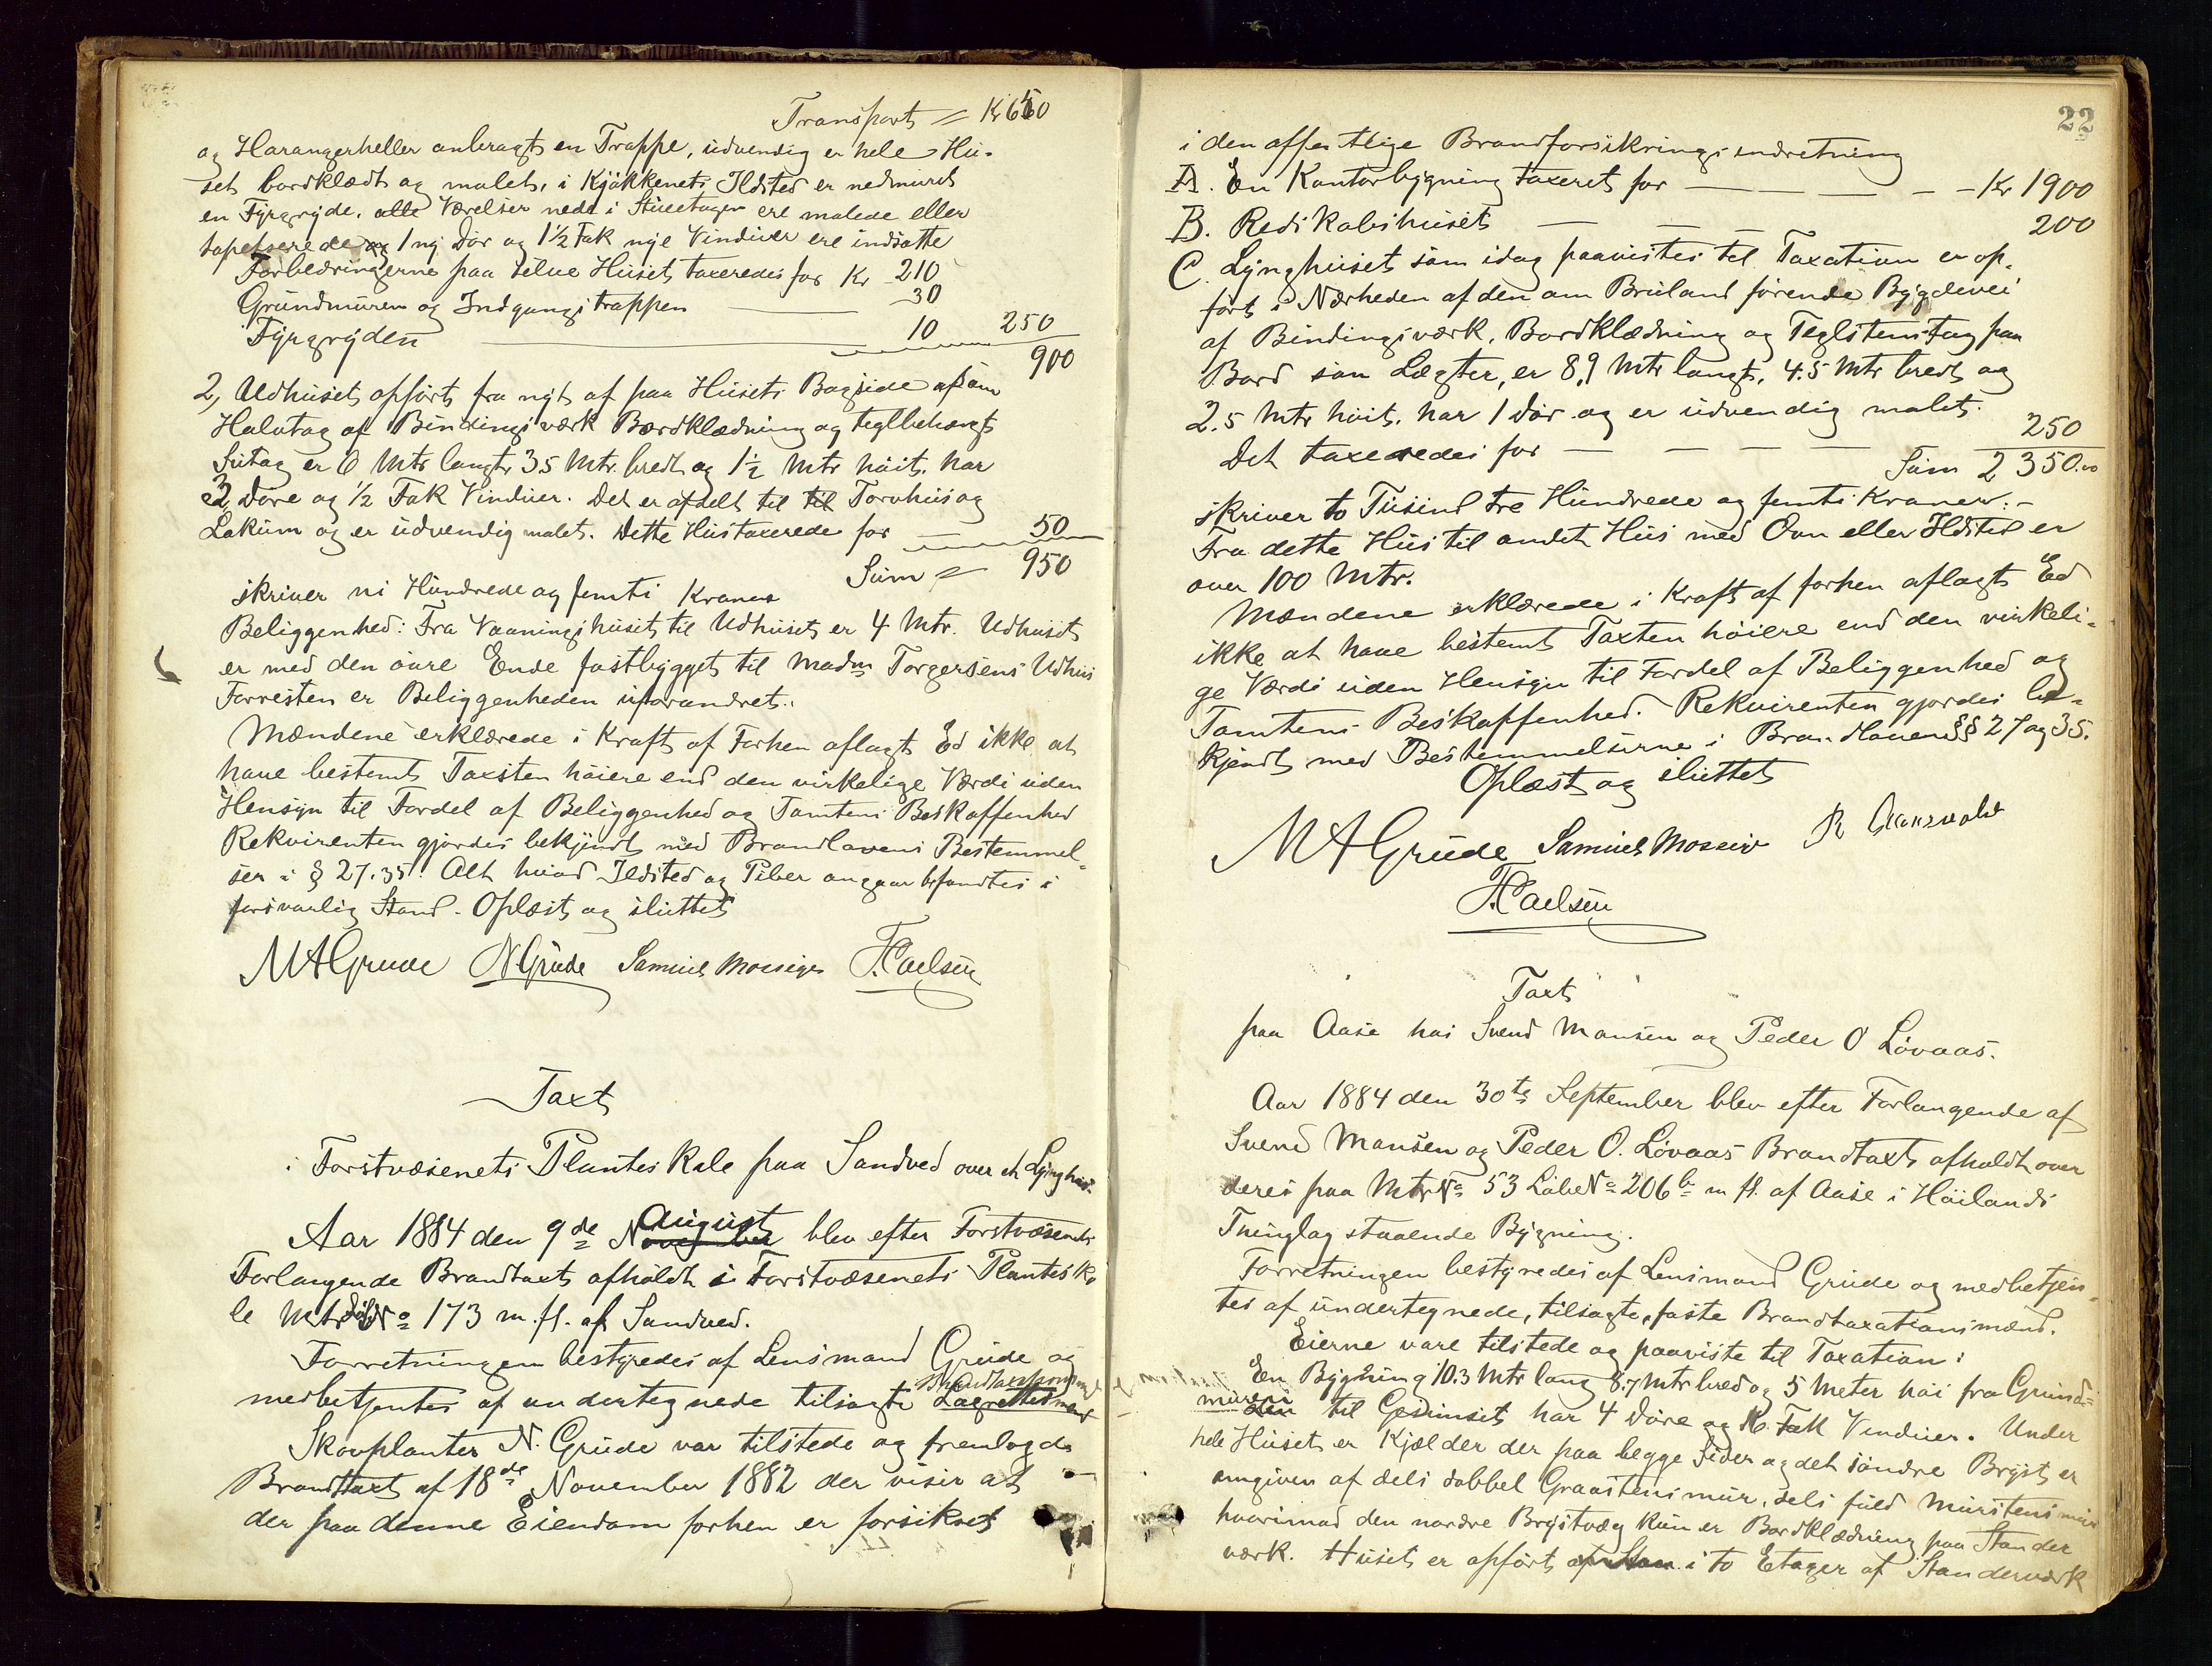 Transport = Kr 650
og Harangerheller anbragt en Trappe, udvendig er hele Hu-
set bordklædt og malet, i Kjøkkenets Ildsted er nedmuret
en Fyrgryde. alle Værelser nede i Stueetagen ere malede eller
tapetserede og 1 ny Dør og 1½ Fak nye Vinduer ere indsatte
Forbedringerne paa selve Huset taxeredes for Kr 210
Grundmuren og Indgangstrappen 30
Fyrgryden 10 250
900
2, Udhuset opført fra nyt af paa Husets Bagside som
Halvtag af Bindingsværk Bordklædning og teglbehængt
Sutag er 6 Mtr langt 3.5 Mtr. bredt og 1½ Mtr høit, har
2 Døre og ½ Fak Vinduer. Det er afdelt til Torvhus og
Lokum og er udvendig malet. Dette Hus taxerede for 50
Sum = 950
skriver ni Hundrede og femti Kroner
Beliggenhed: Fra Vaaningshuset til Udhuset er 4 Mtr. Udhuset
er med den øvre Ende fastbygget til Madm Torgersens Udhus
Forresten er Beliggenheden uforandret.
Mændene erklærede i Kraft af Forhen aflagt Ed ikke at
have bestemt Taxten høiere end den virkelige Værdi uden
Hensyn til Fordel af Beliggenhed og Tomtens Beskaffenhed
Rekvirenten gjordes bekjendt med Brandlovens Bestemmel-
ser i § 27.35. Alt hvad Ildsted og Piber angaar befandtes i
forsvarlig Stand. Oplæst og sluttet
M A Grude N Grude Samuel Mossige F. Caelsen
Taxt
i Forstvæsenets Planteskole paa Sandved over et Lynghus.
Aar 1884 den 9de August blev efter Forstvæsenets
Forlangende Brandtaxt afholdt i Forstvæsenets Plantesko
le Mtr Løbe No 173 m. fl. af Sandved.
Forretningen bestyredes af Lensmand Grude og
medbetjentes af undertegnede tilsagte Brandtaxtmænd
Skovplanter N. Grude var tilstede og fremlagde
Brandtaxt af 18de November 1882 der viser at
der paa denne Eiendom forhen er forsikret
22
i den offentlige Brandforsikringsindretning
A. En Kontorbygning taxeret for Kr 1900
B. Redskabshuset 200
C. Lynghuset som idag paavistes til Taxation er op-
ført i Nærheden af den om Bruland førende Bygdevei
af Bindingsværk, Bordklædning og Teglstenstag paa
Bord som Lægter, er 8,9 Mtr langt, 4.5 Mtr bredt og
2.5 Mtr høit. har 1 Dør og er udvendig malet.
Det taxeredes for 250
Sum 2350.00
skriver to Tusind tre Hundrede og femti Kroner.-
Fra dette Hus til andet Hus med Ovn eller Ildsted er
over 100 Mtr.
Mændene erklærede i Kraft af forhen aflagt Ed
ikke at have bestemt Taxten høiere end den virkeli-
ge Værdi uden Hensyn til Fordel af Beliggenhed og
Tomtens Beskaffenhed. Rekvirenten gjordes be-
kjendt med Bestemmelserne i Brandloven §§ 27 og 35.
Oplæst og sluttet
M A Grude Samuel Mossige
F. Caelsen
Taxt
paa Aase hos Svend Monsen og Peder O Løvaas.
Aar 1884 den 30te September blev efter Forlangende af
Svend Monsen og Peder O. Løvaas Brandtaxt afholdt over
deres paa Mtr No 53 Løbe No 206b m fl. af Aase i Høilands
Thinglag staaende Bygning.
Forretningen bestyredes af Lensmand Grude og medbetjen-
tes af undertegnede, tilsagte, faste Brandtaxationsmænd.
Eierne vare tilstede og paaviste til Taxation:
En Bygning 10.3 Mtr lang 8.7 Mtr bred og 5 Meter høi fra Grund-
muren til Gesimset har 4 Døre og Fak Vinduer. Under
hele Huset er Kjælder der paa begge Sider og det søndre Bryst er
omgiven af dels dobbel Graastensmur, dels fuld Murstensmur
hvorimod den nordre Brystvæg kun er Bordklædning paa Stander
værk. Huset er opført i to Etager af Standerværk